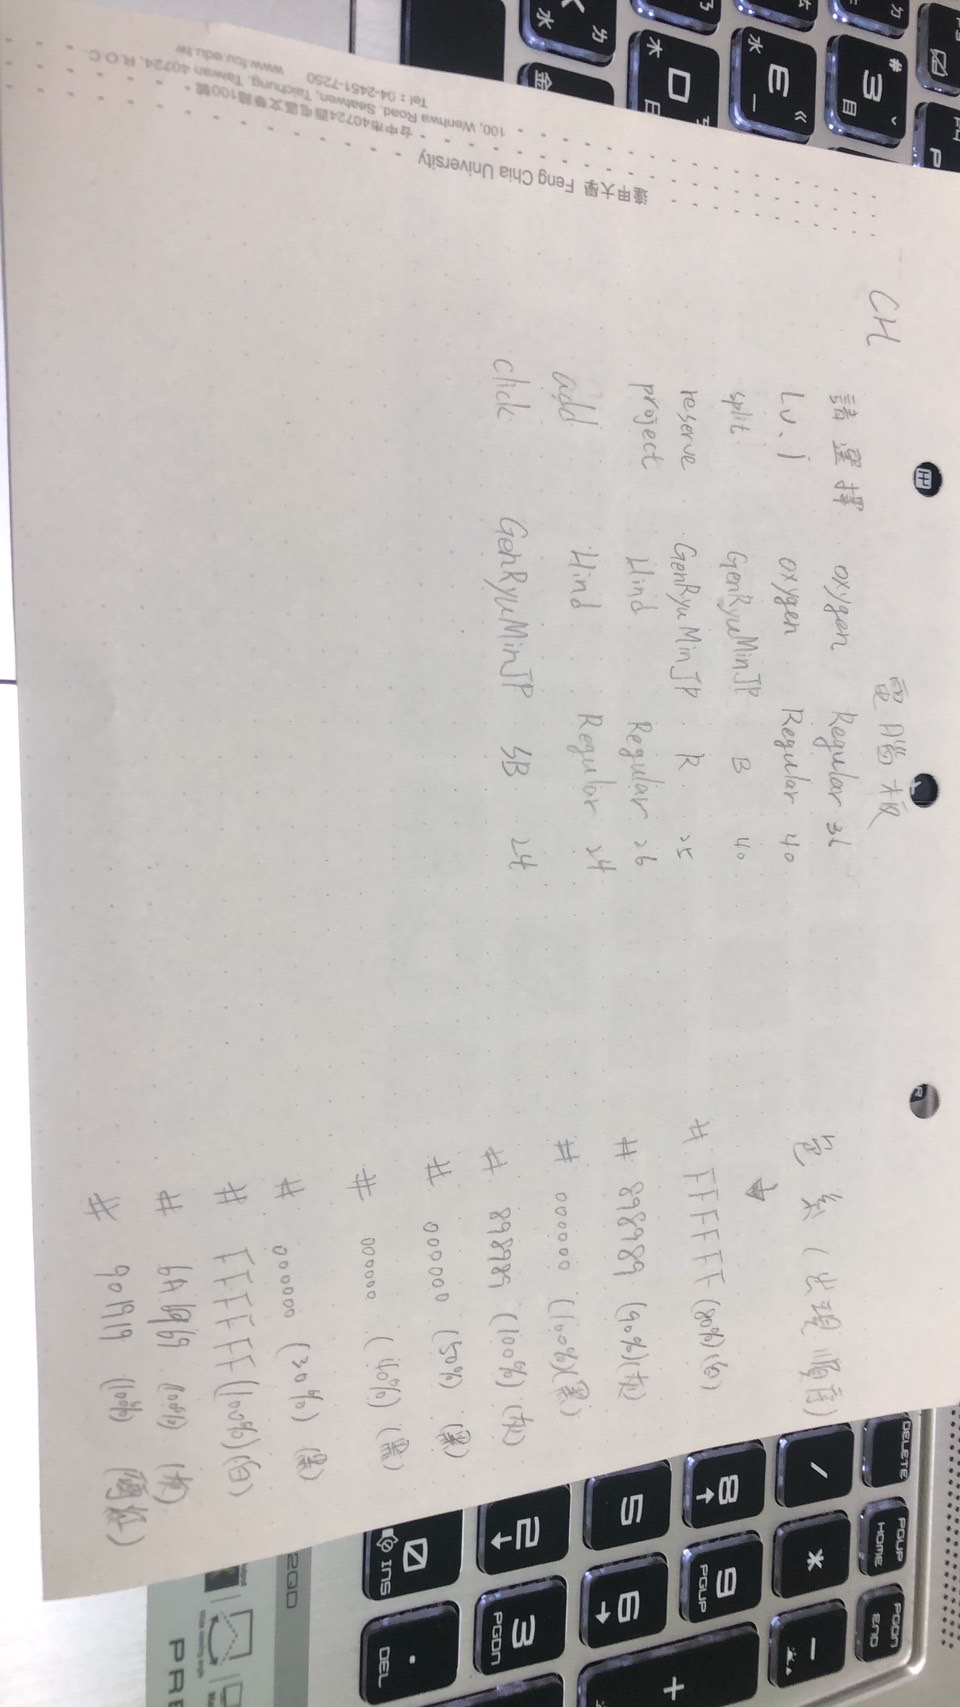 CH
電腦板
請選擇 oxygen Regular 36
Lv.1 oxygen Regular 40
split GenRyuMinJP B 40
reserve GenRyuMinJP R 25
project Hind Regular 26
add Hind Regular 24
click GenRyuMinJP SB 24
色系(出現順序)
# FFFFFF (80%)(白)
# 898989 (90%)(灰)
# 000000 (100%)(黑)
# 898989 (100%)(灰)
# 000000 (50%) (黑)
# 000000 (40%) (黑)
# 000000 (30%) (黑)
# FFFFFF (100%)(白)
# 6A6969 (100%) (灰)
# 901919 (10%)
逢甲大學 Feng Chia University
100, Wenhwa Road, Seatwen, Taichung, Taiwan 40724, R.O.C.
台中市40724西屯區文華路100號
Tel : 04-2451-7250
www.fcu.edu.tw
DELETE
PGUP HOME
PGDN END
/
*
-
8
9 PGUP
+
5
6
2
3 PGDN
0 INS
. DEL
# 3 ˇ ㄓ
E ㄍ 水 一
D ㄎ 木 日
F4
P
2QD
Wide viewing angle